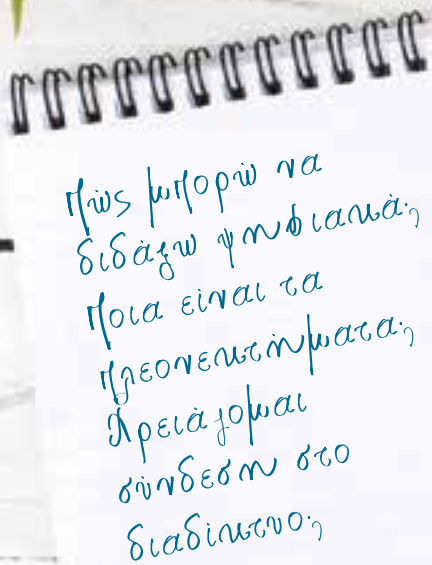 Πώς μπορώ να
διδάξω ψηφιακά;
Ποια είναι τα
πλεονεκτήματα;
Χρειάζομαι
σύνδεση στο
διαδίκτυο;